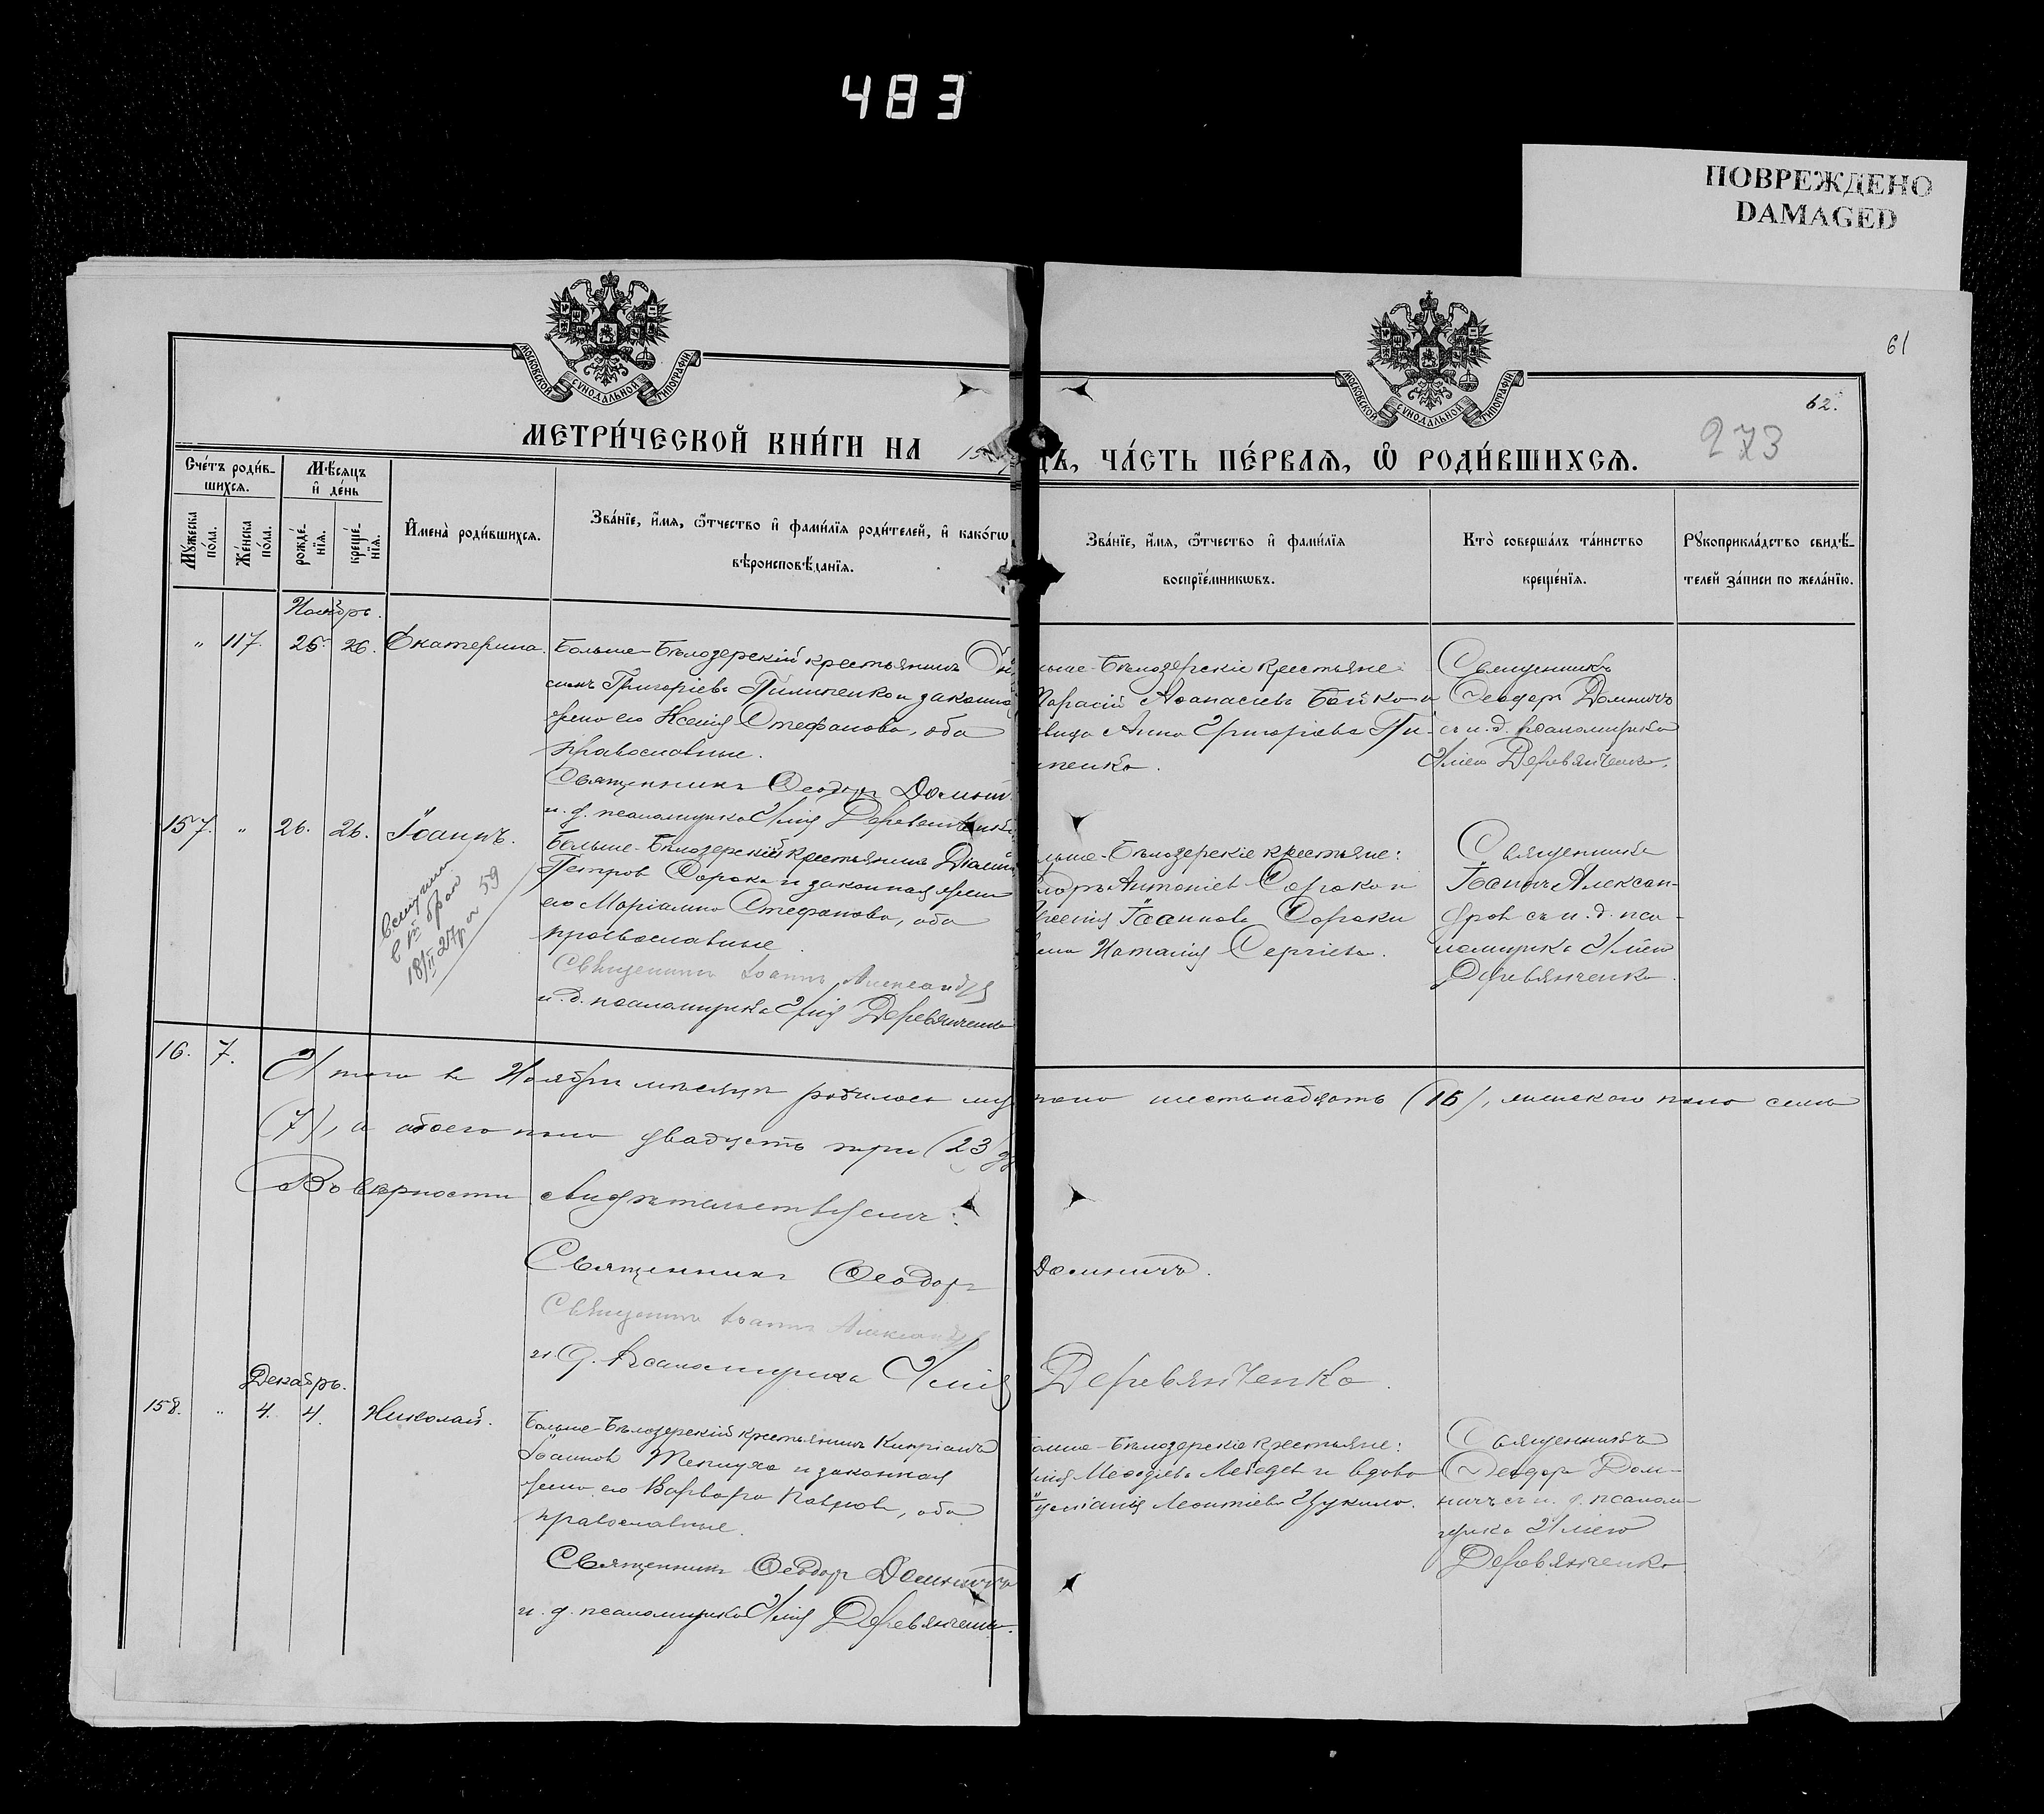 483
ПОВРЕЖДЕНО
DAMAGED
МОСКОВСКОЙ СУНОДАЛЬНОЙ ТИПОГРАФІИ
МОСКОВСКОЙ СУНОДАЛЬНОЙ ТИПОГРАФІИ
61
62.
273
МЕТРИ́ЧЕСКОЙ КНИ́ГИ НА
ЧА́СТЬ ПЕ́РВАЯ, Ѡ РОДИ́ВШИХСЯ.
Сче́тъ роди́в-
шихся.
Мѣ́сяцъ
и҆ де́нь
Му́жеска по́ла.
Же́нска по́ла.
рожде́-
нїя.
креще́-
нїя.
И҆мена̀ роди́вшихся.
Зва́нїе, и҆́мя, ѻ҆́тчество и҆ фами́лїя роди́телей, и҆ како́гѡ
вѣроисповѣ́данїя.
Зва́нїе, и҆́мя, ѻ҆́тчество и҆ фами́лїя
воспрїе́мникѡвъ.
Кто̀ соверша́лъ та́инство
креще́нїя.
Рꙋкоприкла́дство свидѣ́-
телей за́писи по жела́нїю.
Ноябрь.
" 117. 25. 26. Екатерина.
Больше-Бѣлозерскій крестьянинъ
симъ Григоріевъ Пилипенко и законная
жена его Ксенія Стефанова, оба
православные.
Священникъ Ѳеодоръ Домнич
и. д. псаломщика Илія Деревянченко
Бѣлозерскіе крестьяне:
Аѳанасіевъ Бойко и
Анна Григоріева Пи-
пенко.
Священникъ
Ѳеодоръ Домничъ
съ и. д. псаломщика
Иліею Деревянченко.
157. " 26. 26. Іоаннъ.
18/II 27 р а 59
Больше-Бѣлозерскій крестьянинъ
Петровъ Сорока и законная жена
его Маріамна Стефанова, оба
православные.
Священникъ Іоаннъ Александр
и. д. псаломщика Илія Деревянченко
Бѣлозерскіе крестьяне:
Антоніевъ Сорока и
Іоаннова Сороки
жена Наталія Сергіева.
Священникъ
Іоаннъ Алексан-
дровъ съ и. д. пса-
ломщика Иліею
Деревянченко.
16. 7.
Итого въ Ноябрѣ мѣсяцѣ родилось
пола шестьнадцать (16), женскаго пола семь
(7), а обоего пола двадцать три (23)
Въ вѣрности свидѣтельствуемъ:
Священникъ Ѳеодоръ Домничъ.
Священникъ Іоаннъ Александр
и. д. псаломщика Илія Деревянченко.
Декабрь.
158. " 4. 4. Николай.
Больше-Бѣлозерскій крестьянинъ Кипріанъ
Іоанновъ и законная
жена его Варвара Павлова, оба
православные.
Священникъ Ѳеодоръ Домничъ
и. д. псаломщика Илія Деревянченко.
Бѣлозерскіе крестьяне:
Меѳодіевъ Лебедев и вдова
Леонтіева Цукило.
Священникъ
Ѳеодоръ Дом-
ничъ съ и. д. псалом-
щика Иліею
Деревянченко